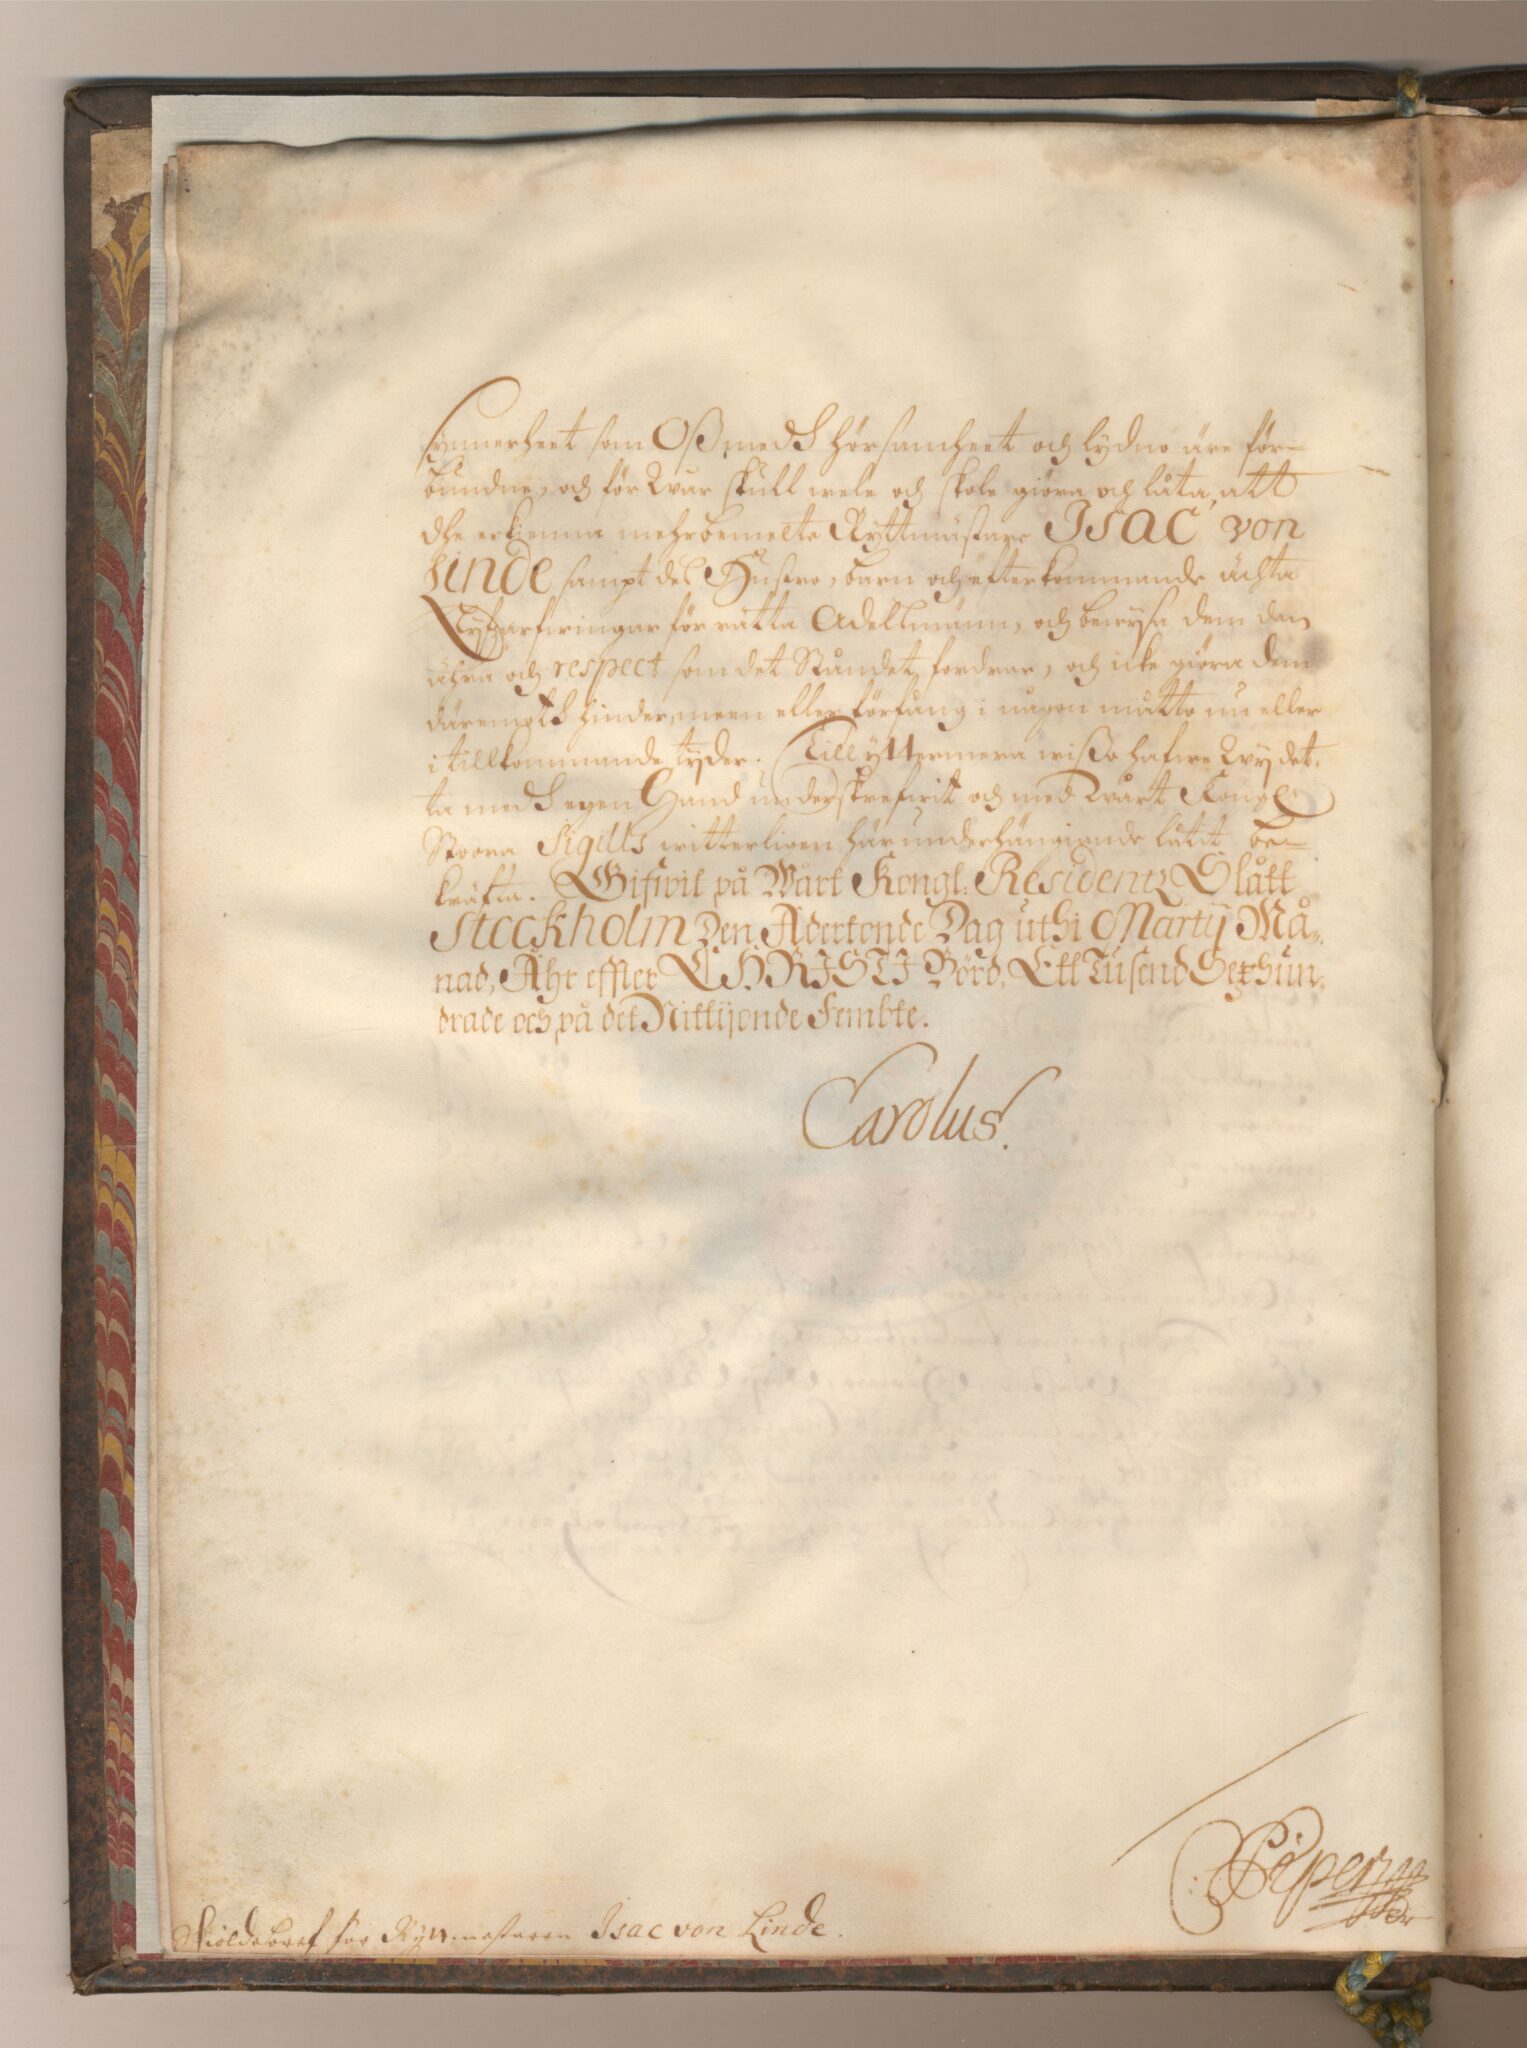 synnerheet som Oß medh hörsamheet och lydno äre för-
bundne, och för Wår skull wele och skole giöra och låta, att
dhe erkienna mehrbemelte Ryttmästare Isac von
Linde sampt des Hustro, barn och efterkommande ächta
Lyfzarfwingar för rätta Adellmänn, och bewysa dem den
ähra och respect som det Ståndet fordrar, och icke giöra dem
däremoth hinder, meen eller förfång i någon måtto nu eller
i tillkommande tyder. Till yttermera wißo hafwe Wy det-
ta medh egen Hand underskrefwit och med Wårt Kongl.
Stoora Sigills witterligen här underhängiande låtit be-
kräfta. Gifwit på Wårt Kongl: Residentz Slått
Stockholm Den Adertonde Dag uthi Martij Må-
nad, Åhr effter CHRISTI Börd, Ett Tusend Sexhun-
drade och på det Nittijonde Fembte.
Carolus.
C Piper
Skiöldebref för Ryttmestaren Isac von Linde.